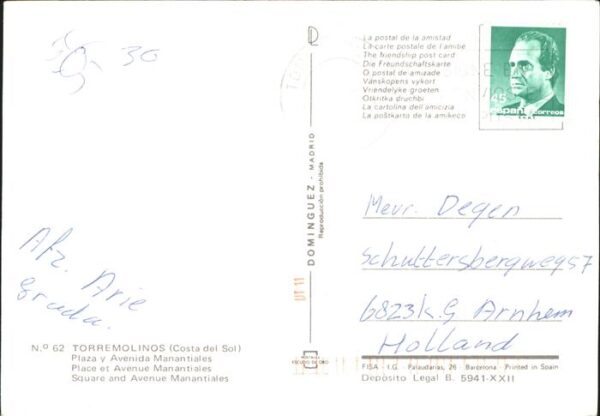 30
La postal de la amistad
La carte postale de l'amitié
The friendship post card
Die Freundschaftskarte
O postal de amizade
Vänskapens vykort
Vriendelyke groeten
Otkritka druchbi
La cartolina dell'amicizia
La poŝtkarto de la amikeco
45
españa correos
DOMINGUEZ - MADRID
Reproducción prohibida
Mevr. Degen
Schuttersbergweg 57
6823 k.G Arnhem
Holland
Afz. Arie
Grada.
N.º 62 TORREMOLINOS (Costa del Sol)
Plaza y Avenida Manantiales
Place et Avenue Manantiales
Square and Avenue Manantiales
POSTALES
ESCUDO DE ORO
FISA - I.G. Palaudarias, 26 - Barcelona - Printed in Spain
Depósito Legal B. 5941-XXII